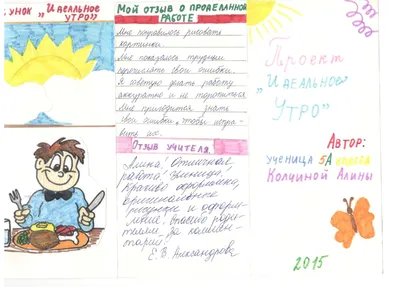 УНОК „ИДЕАЛЬНОЕ
УТРО"
МОЙ ОТЗЫВ О ПРОДЕЛАННОЙ
РАБОТЕ
Мне понравилось рисовать
картинки.
Мне показалось трудным
свои ошибки.
Я советую делать работу
аккуратно и не торопиться.
Мне пригодится знать
свои ошибки, чтобы испра-
вить их.
ОТЗЫВ УЧИТЕЛЯ.
Алина! Отличная
работа! Умница!
Красиво оформлена,
оригинальные
рисунки и оформ-
ление. Спасибо роди-
телям за коммен-
тарии!
Е.В. Александрова
Проект
„Идеальное
Утро"
Автор:
ученица 5А класса
Колчиной Алины
2015